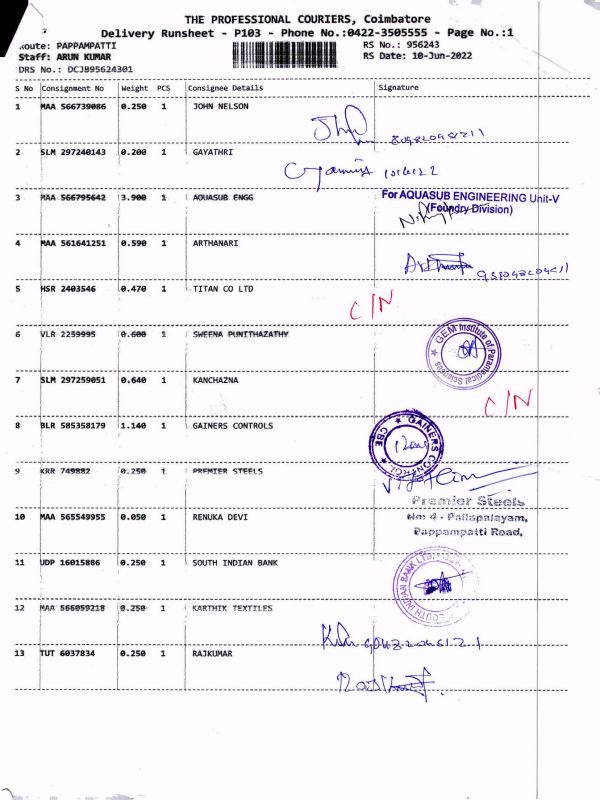 THE PROFESSIONAL COURIERS, Coimbatore
Delivery Runsheet - P103 - Phone No.:0422-3505555 - Page No.:1
Route: PAPPAMPATTI RS No.: 956243
Staff: ARUN KUMAR RS Date: 10-Jun-2022
DRS No.: DCJB95624301
S No Consignment No Weight PCS Consignee Details Signature
1 MAA 566739086 0.250 1 JOHN NELSON
2 SLM 297240143 0.200 1 GAYATHRI
3 MAA 566795642 3.900 1 AQUASUB ENGG
For AQUASUB ENGINEERING Unit-V
(Foundry Division)
4 MAA 561641251 0.590 1 ARTHANARI
5 HSR 2403546 0.470 1 TITAN CO LTD
C/N
6 VLR 2259995 0.600 1 SWEENA PUNITHAZATHY
GEM Institute of Paramedical Sciences
7 SLM 297259051 0.640 1 KANCHAZNA
C/N
8 BLR 585358179 1.140 1 GAINERS CONTROLS
GAINERS CONTROL
CBE
9 KRR 749882 0.250 1 PREMIER STEELS
Premier Steels
No: 4 - Pallapalayam,
Pappampatti Road,
10 MAA 565549955 0.050 1 RENUKA DEVI
11 UDP 16015886 0.250 1 SOUTH INDIAN BANK
SOUTH INDIAN BANK LTD.
12 MAA 566059218 0.250 1 KARTHIK TEXTILES
13 TUT 6037834 0.250 1 RAJKUMAR